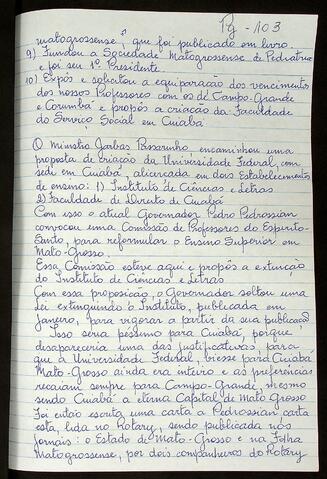 Pg - 103
matogrossense", que foi publicado em livro.
9) Fundou a Sociedade Matogrossense de Pediatria
e foi seu 1º Presidente
10) Expôs e solicitou a equiparação dos vencimentos
dos nossos Professores com os de Campo-Grande
e Corumbá e propôs a criação da Faculdade
do Serviço Social em Cuiabá
O Ministro Jarbas Passarinho encaminhou uma
proposta de criação da Universidade Federal, com
sede em Cuiabá, alicerçada em dois Estabelecimentos
de ensino: 1) Instituto de Ciências e Letras
2) Faculdade de Direito de Cuiabá
Com isso o atual Governador Pedro Pedrossian
convocou uma Comissão de Professores do Espirito-
Santo, para reformular o Ensino Superior em
Mato-Grosso.
Essa Comissão esteve aqui e propôs a extinção
do Instituto de Ciências e Letras
Com essa proposição, o Governador soltou uma
lei extinguindo o Instituto, publicada em
Janeiro, para vigorar a partir da sua publicação
Isso seria péssimo para Cuiabá, porque
desapareceria uma das justificativas para
que a Universidade Federal, viesse para Cuiabá
Mato-Grosso ainda era inteiro e as preferências
recaiam sempre para Campo-Grande, mesmo
sendo Cuiabá a eterna Capital de Mato Grosso
Foi então escrita uma carta a Pedrossian carta
esta, lida no Rotary, sendo publicada nos
jornais: o Estado de Mato-Grosso e na Folha
Matogrossense, por dois companheiros do Rotary